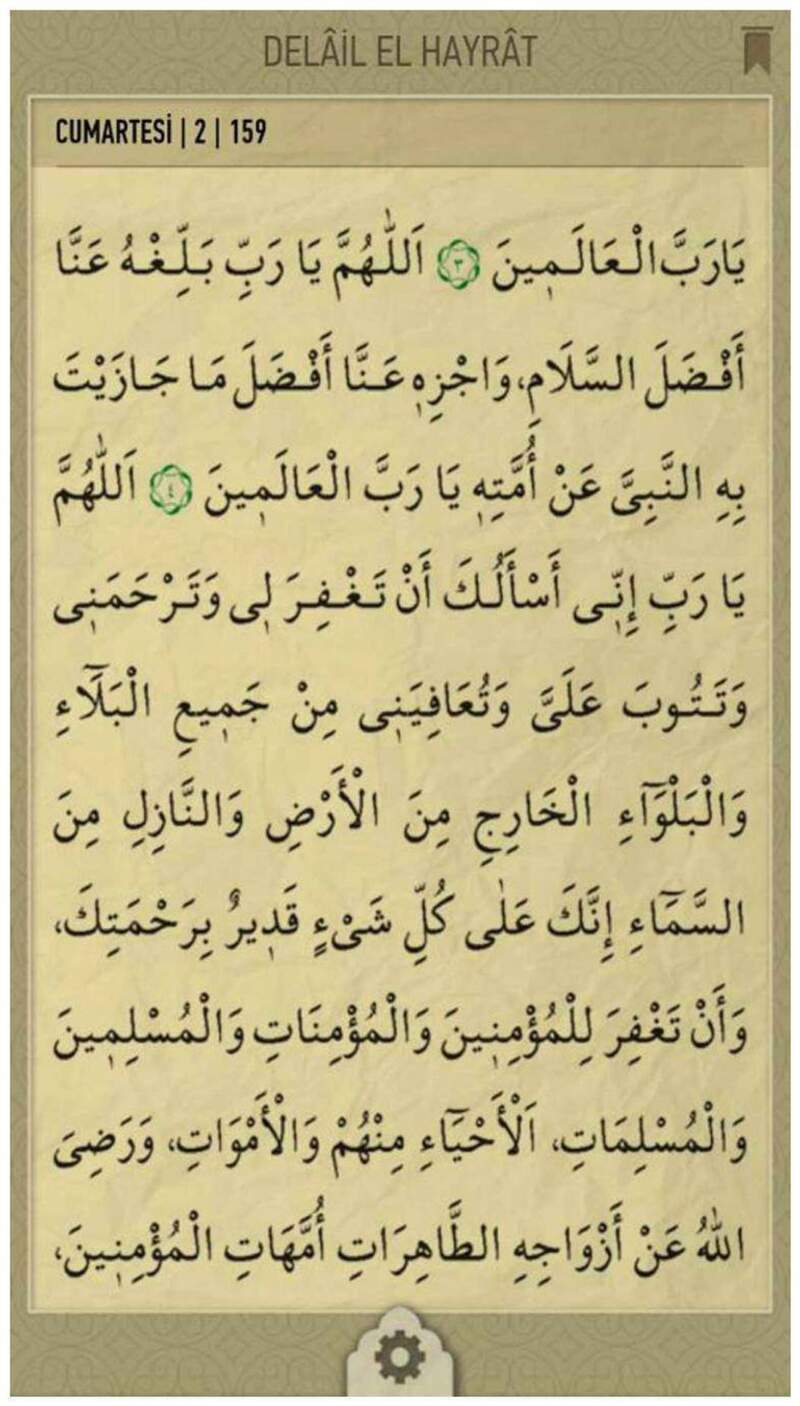 DELÂİL EL HAYRÂT
CUMARTESİ | 2 | 159
يَارَبَّ الْعَالَمٖينَ ﴿٣﴾ اَللّٰهُمَّ يَا رَبِّ بَلِّغْهُ عَنَّا
أَفْضَلَ السَّلَامِ، وَاجْزِهٖ عَنَّا أَفْضَلَ مَا جَازَيْتَ
بِهِ النَّبِىَّ عَنْ أُمَّتِهٖ يَا رَبَّ الْعَالَمٖينَ ﴿٤﴾ اَللّٰهُمَّ
يَا رَبِّ إِنّٖى أَسْأَلُكَ أَنْ تَغْفِرَ لٖى وَتَرْحَمَنٖى
وَتَتُوبَ عَلَىَّ وَتُعَافِيَنٖى مِنْ جَمٖيعِ الْبَلَٓاءِ
وَالْبَلْوَٓاءِ الْخَارِجِ مِنَ الْأَرْضِ وَالنَّازِلِ مِنَ
السَّمَٓاءِ إِنَّكَ عَلٰى كُلِّ شَىْءٍ قَدٖيرٌ بِرَحْمَتِكَ،
وَأَنْ تَغْفِرَ لِلْمُؤْمِنٖينَ وَالْمُؤْمِنَاتِ وَالْمُسْلِمٖينَ
وَالْمُسْلِمَاتِ، اَلْأَحْيَٓاءِ مِنْهُمْ وَالْأَمْوَاتِ، وَرَضِىَ
اللّٰهُ عَنْ أَزْوَاجِهِ الطَّاهِرَاتِ أُمَّهَاتِ الْمُؤْمِنٖينَ،